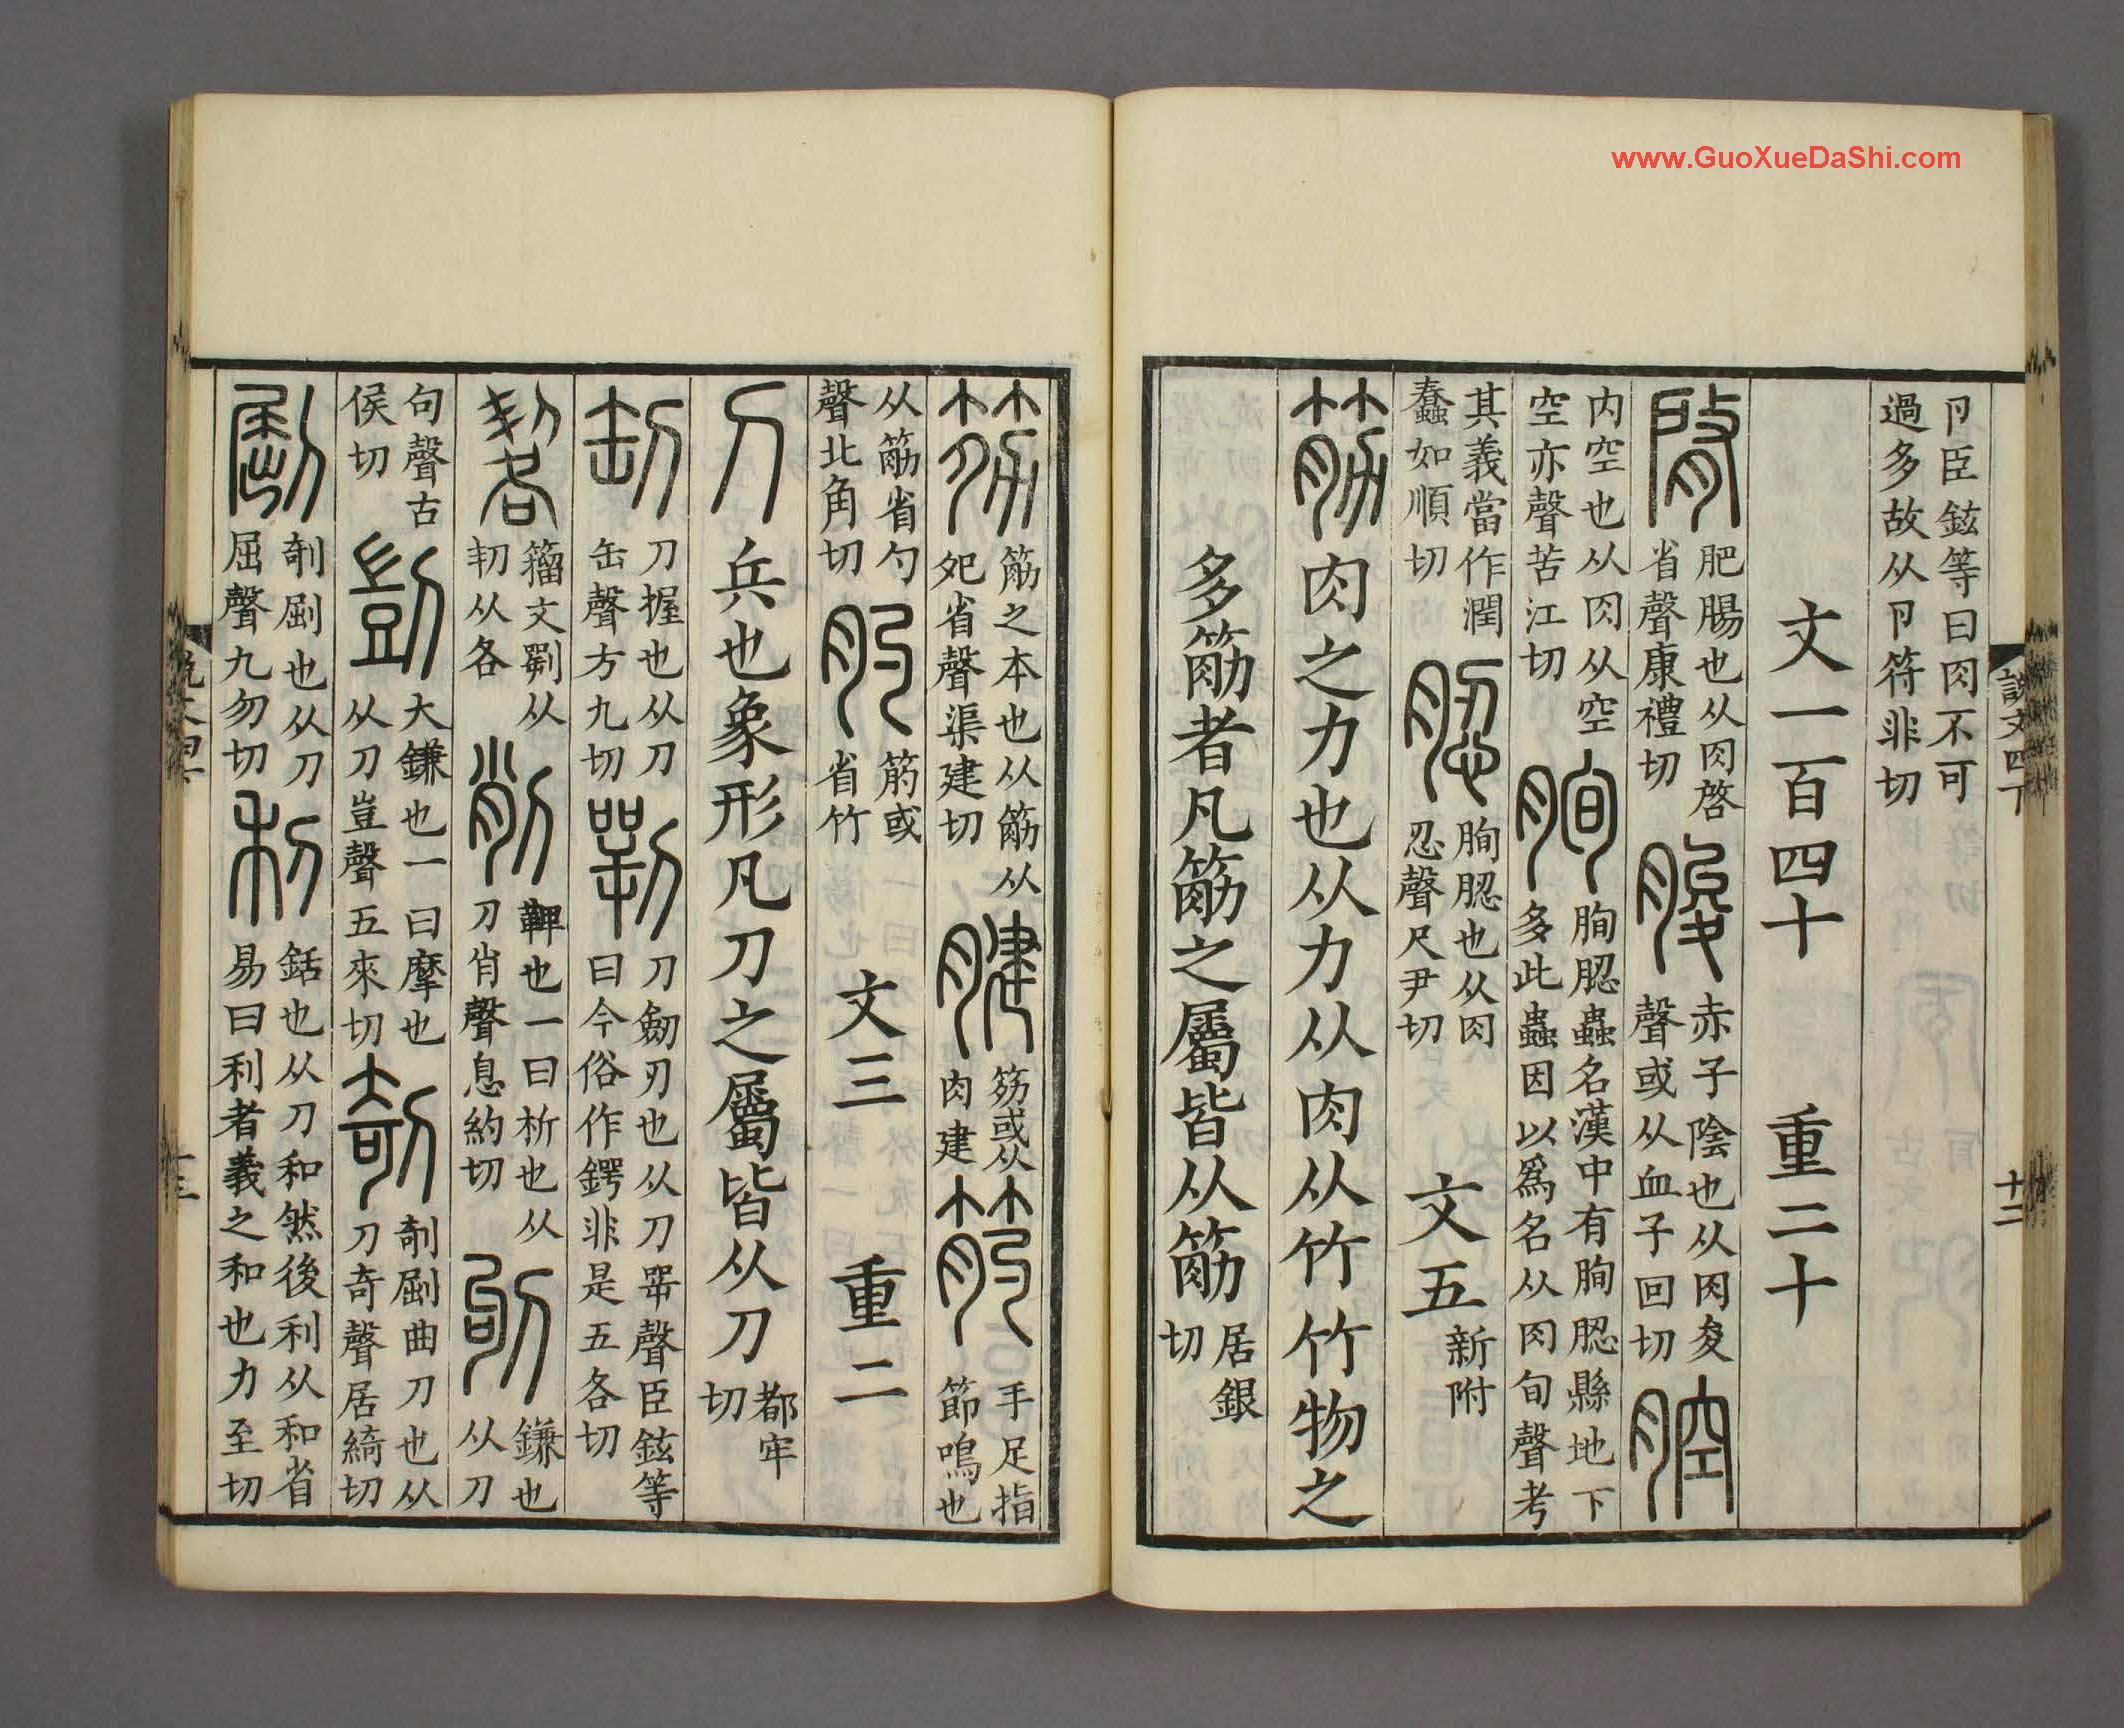 卪臣鉉等曰肉不可過多故从卪符非切
文一百四十 重二十
䏿 肥腸也从肉啓省聲康禮切 朘 赤子陰也从肉夋聲或从血子回切 腔
内空也从肉从空空亦聲苦江切 朐 朐䏰蟲名漢中有朐䏰縣地下多此蟲因以爲名从肉旬聲考
其義當作潤蠢如順切 䏰 朐䏰也从肉忍聲尺尹切 文五 新附
筋 肉之力也从力从肉从竹竹物之
多筋者凡筋之屬皆从筋 居銀切
說文四下 十二
筋之本也从筋从夗省聲渠建切 腱 或从肉建 手足指節鳴也
从筋省勺聲北角切 肑 或省竹 文三 重二
刀 兵也象形凡刀之屬皆从刀 都牢切
刀握也从刀缶聲方九切 㓵 刀劒刃也从刀咢聲臣鉉等曰今俗作鍔非是五各切
籒文㓵从㓞从各 削 鞞也一曰析也从刀肖聲息約切 鎌也从刀
句聲古侯切 剴 大鎌也一曰摩也从刀豈聲五來切 剞 剞曲刀也从刀奇聲居綺切
剞也从刀屈聲九勿切 利 銛也从刀和然後利从和省易曰利者義之和也力至切
十三
www.GuoXueDaShi.com